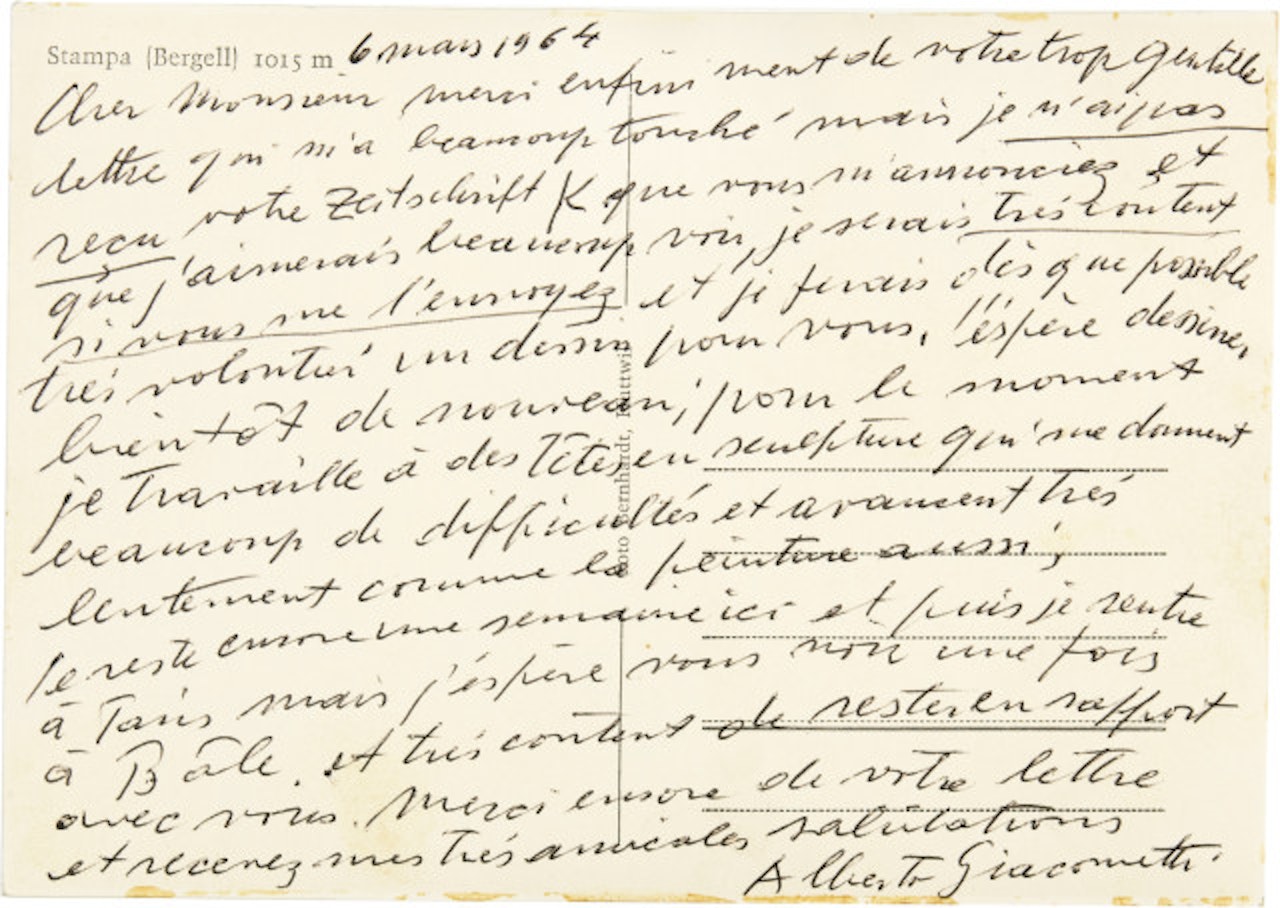 Stampa (Bergell) 1015 m 6 mars 1964
Cher Monsieur merci enfini ment de votre trop gentille
lettre qui m'a beaucoup touché mais je n'ai pas
reçu votre Zeitschrift K que vous m'annonciez et
que j'aimerais beaucoup voir, je serais très content
si vous me l'envoyez et je ferais dès que possible
très volontié un dessin pour vous, j'éspère dessiner
bientôt de nouveau, pour le moment
je travaille à des têtes en sculpture qui me donnent
beaucoup de difficultés et avancent très
lentement comme la peinture aussi,
je reste encore une semaine ici et puis je rentre
à Paris mais j'éspère vous voir une fois
à Bâle. et très content de rester en rapport
avec vous. Merci encore de votre lettre
et recevez mes très amicales salutations
Alberto Giacometti
Foto Bernhardt, Buttwil